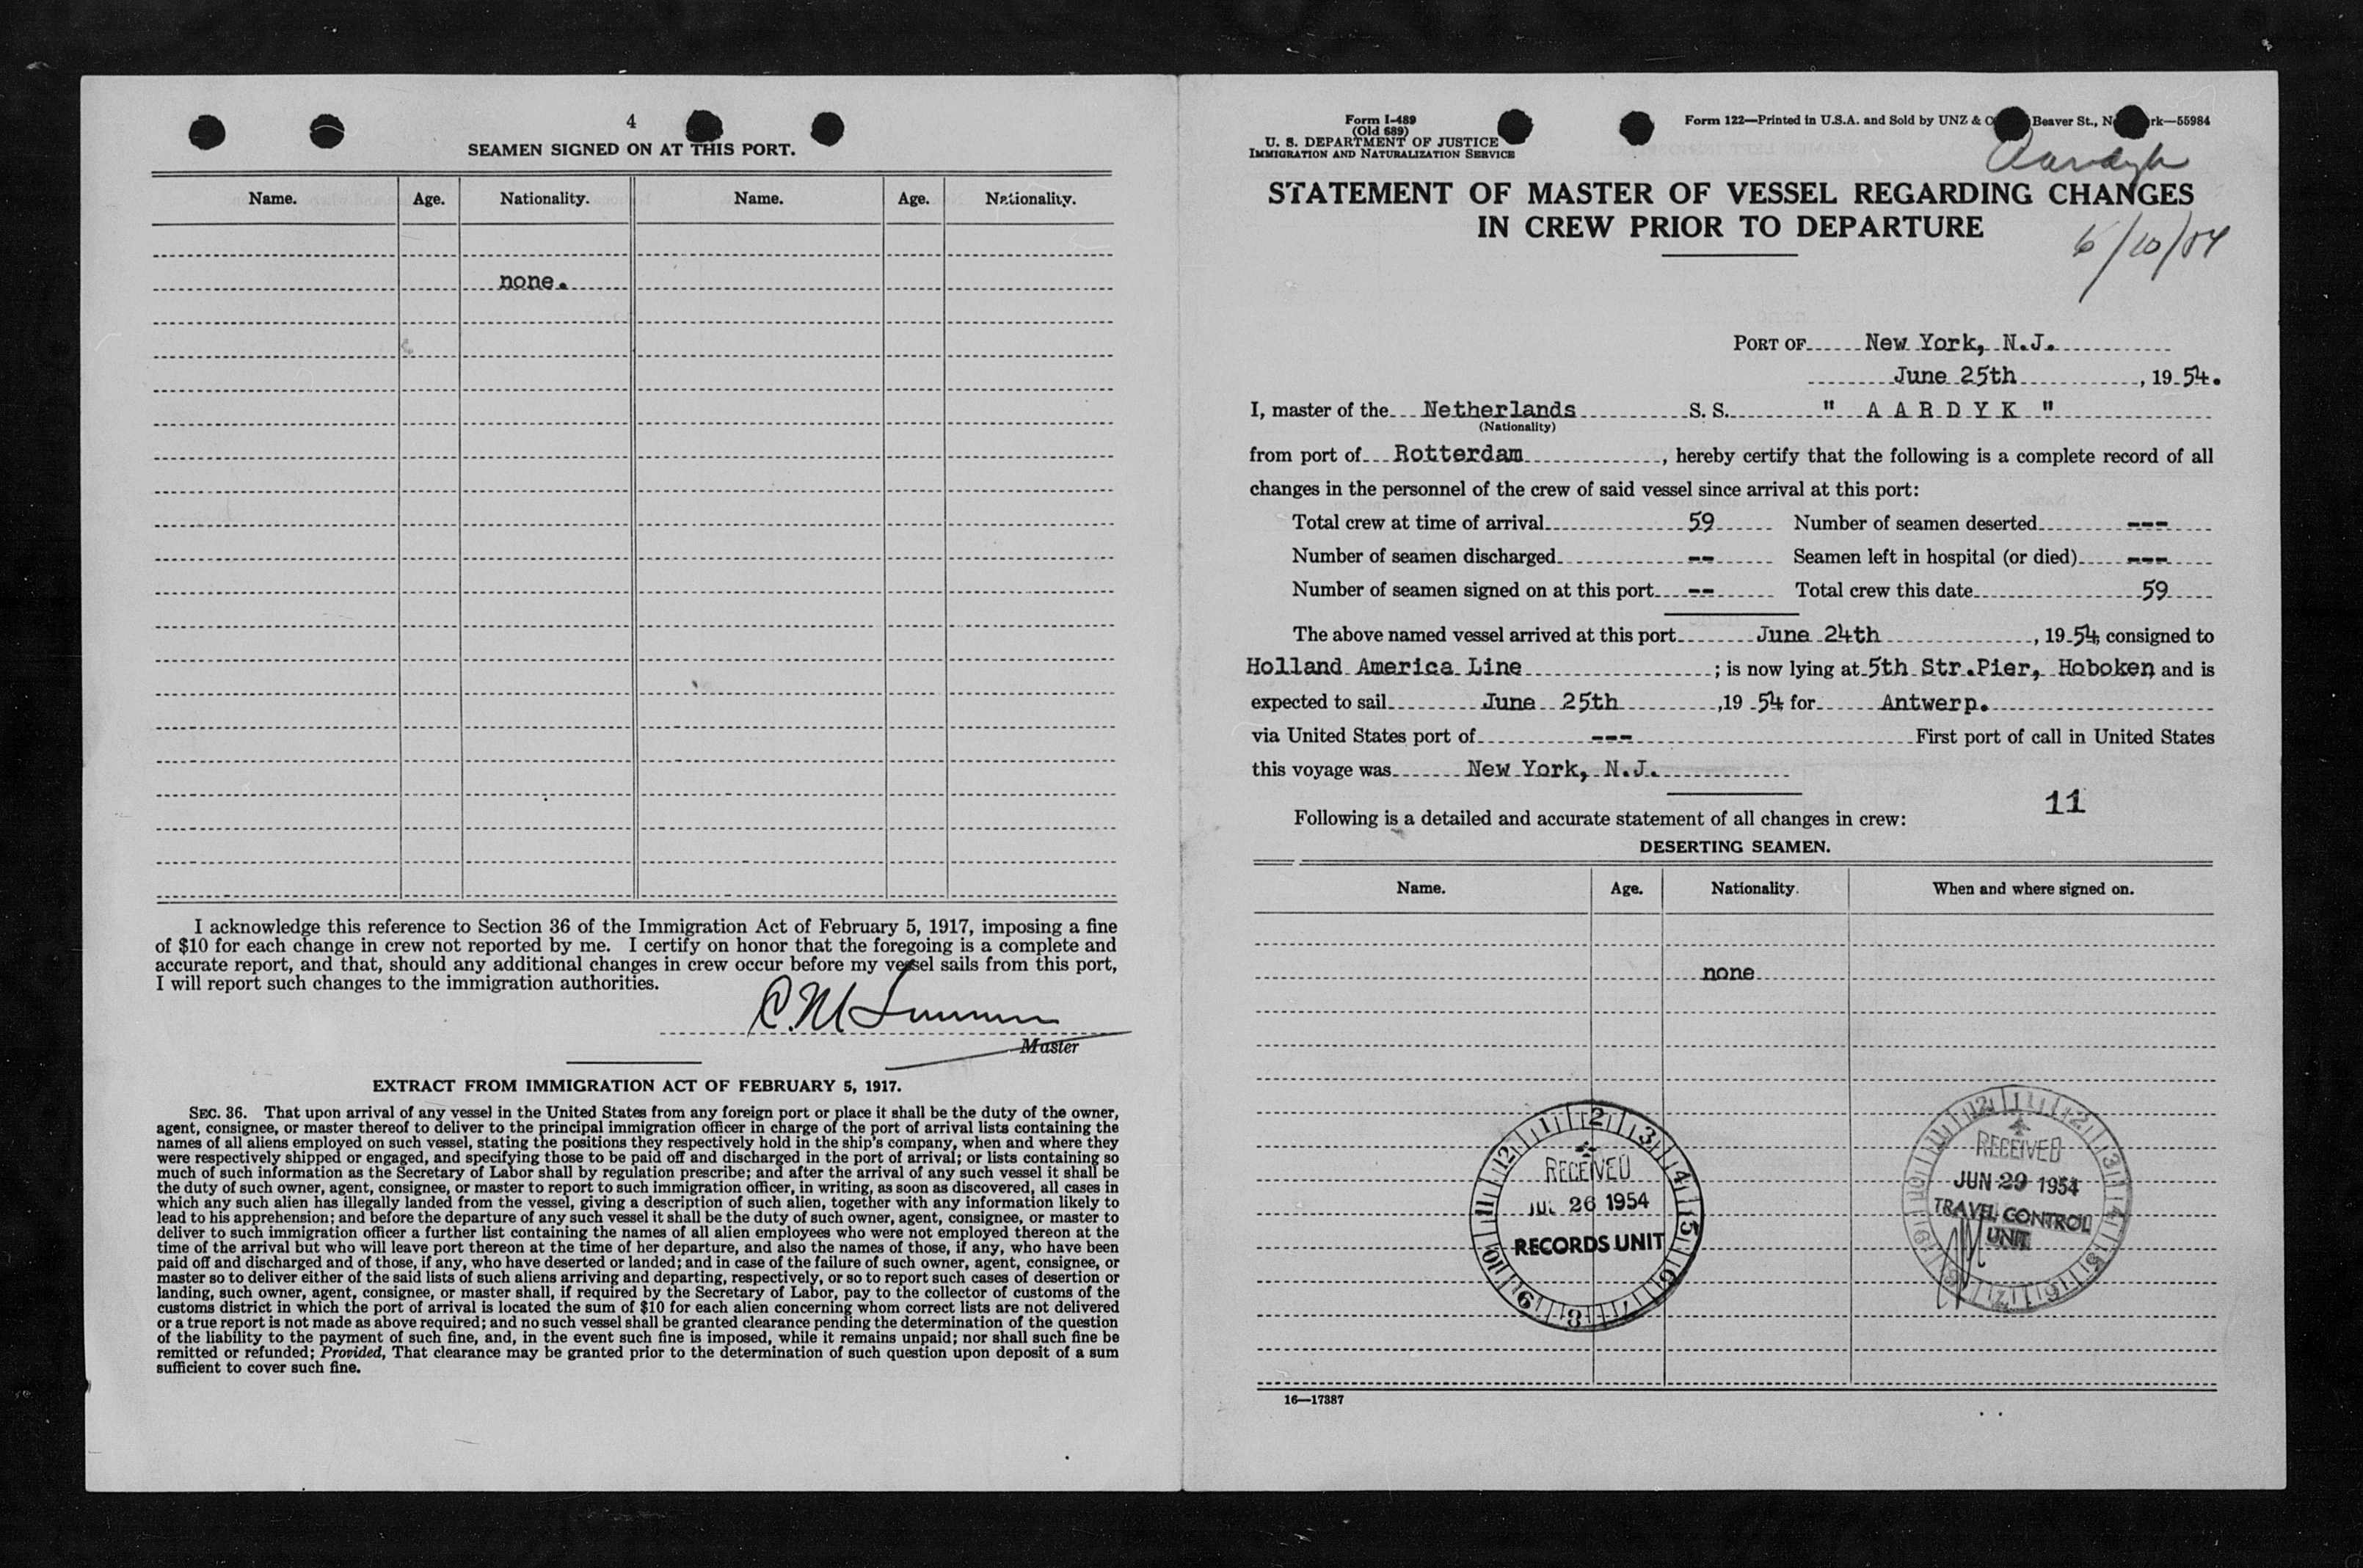 4
SEAMEN SIGNED ON AT THIS PORT.
Name. Age. Nationality. Name. Age. Nationality.
none.
I acknowledge this reference to Section 36 of the Immigration Act of February 5, 1917, imposing a fine
of $10 for each change in crew not reported by me. I certify on honor that the foregoing is a complete and
accurate report, and that, should any additional changes in crew occur before my vessel sails from this port,
I will report such changes to the immigration authorities.
Master
EXTRACT FROM IMMIGRATION ACT OF FEBRUARY 5, 1917.
SEC. 36. That upon arrival of any vessel in the United States from any foreign port or place it shall be the duty of the owner,
agent, consignee, or master thereof to deliver to the principal immigration officer in charge of the port of arrival lists containing the
names of all aliens employed on such vessel, stating the positions they respectively hold in the ship's company, when and where they
were respectively shipped or engaged, and specifying those to be paid off and discharged in the port of arrival; or lists containing so
much of such information as the Secretary of Labor shall by regulation prescribe; and after the arrival of any such vessel it shall be
the duty of such owner, agent, consignee, or master to report to such immigration officer, in writing, as soon as discovered, all cases in
which any such alien has illegally landed from the vessel, giving a description of such alien, together with any information likely to
lead to his apprehension; and before the departure of any such vessel it shall be the duty of such owner, agent, consignee, or master to
deliver to such immigration officer a further list containing the names of all alien employees who were not employed thereon at the
time of the arrival but who will leave port thereon at the time of her departure, and also the names of those, if any, who have been
paid off and discharged and of those, if any, who have deserted or landed; and in case of the failure of such owner, agent, consignee, or
master so to deliver either of the said lists of such aliens arriving and departing, respectively, or so to report such cases of desertion or
landing, such owner, agent, consignee, or master shall, if required by the Secretary of Labor, pay to the collector of customs of the
customs district in which the port of arrival is located the sum of $10 for each alien concerning whom correct lists are not delivered
or a true report is not made as above required; and no such vessel shall be granted clearance pending the determination of the question
of the liability to the payment of such fine, and, in the event such fine is imposed, while it remains unpaid; nor shall such fine be
remitted or refunded; Provided, That clearance may be granted prior to the determination of such question upon deposit of a sum
sufficient to cover such fine.
Form I-489
(Old 689)
U. S. DEPARTMENT OF JUSTICE
IMMIGRATION AND NATURALIZATION SERVICE
Form 122—Printed in U.S.A. and Sold by UNZ & Beaver St., 55984
STATEMENT OF MASTER OF VESSEL REGARDING CHANGES
IN CREW PRIOR TO DEPARTURE
PORT OF New York, N.J.
June 25th, 1954.
I, master of the Netherlands S. S. " A A R D Y K "
(Nationality)
from port of Rotterdam, hereby certify that the following is a complete record of all
changes in the personnel of the crew of said vessel since arrival at this port:
Total crew at time of arrival 59 Number of seamen deserted ---
Number of seamen discharged -- Seamen left in hospital (or died) ---
Number of seamen signed on at this port -- Total crew this date 59
The above named vessel arrived at this port June 24th, 1954, consigned to
Holland America Line; is now lying at 5th Str.Pier, Hoboken and is
expected to sail June 25th, 1954 for Antwerp.
via United States port of --- First port of call in United States
this voyage was New York, N.J.
11
Following is a detailed and accurate statement of all changes in crew:
DESERTING SEAMEN.
Name. Age. Nationality. When and where signed on.
none
RECEIVED
26 1954
RECORDS UNIT
RECEIVED
JUN 29 1954
TRAVEL CONTROL
UNIT
16—17387